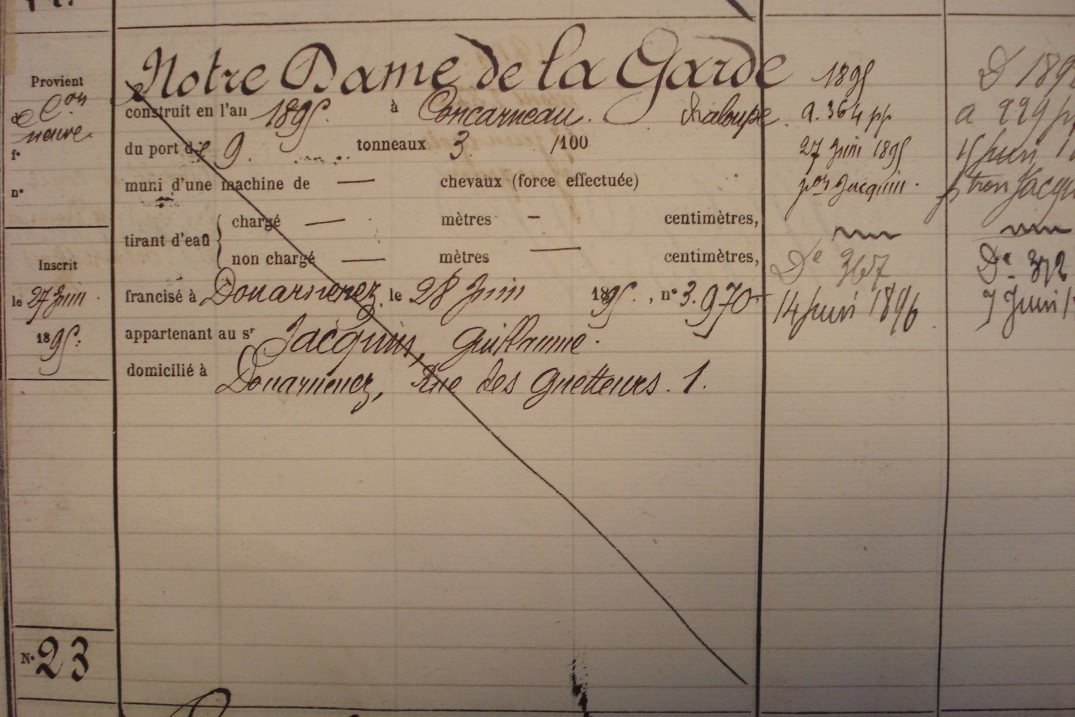 Provient
de Con
neuve
f°
n°
Inscrit
le 27 Juin
1895
N° 23
Notre Dame de la Garde
construit en l'an 1895 à Concarneau. chaloupe
du port de 9 tonneaux 3 /100
muni d'une machine de — chevaux (force effectuée)
tirant d'eau
chargé — mètres — centimètres,
non chargé — mètres — centimètres,
francisé à Douarnenez, le 28 Juin 1895, n° 3.970
appartenant au sr Jacquin, Guillaume.
domicilié à Douarnenez, Rue des Guetteurs. 1.
1895
a. 364 pp
27 Juin 1895
pon Jacquin.
De 3457
14 Juin 1896
D 189
a 229 pp
Juin
ptron Jacqu
De 372
7 Juin 1